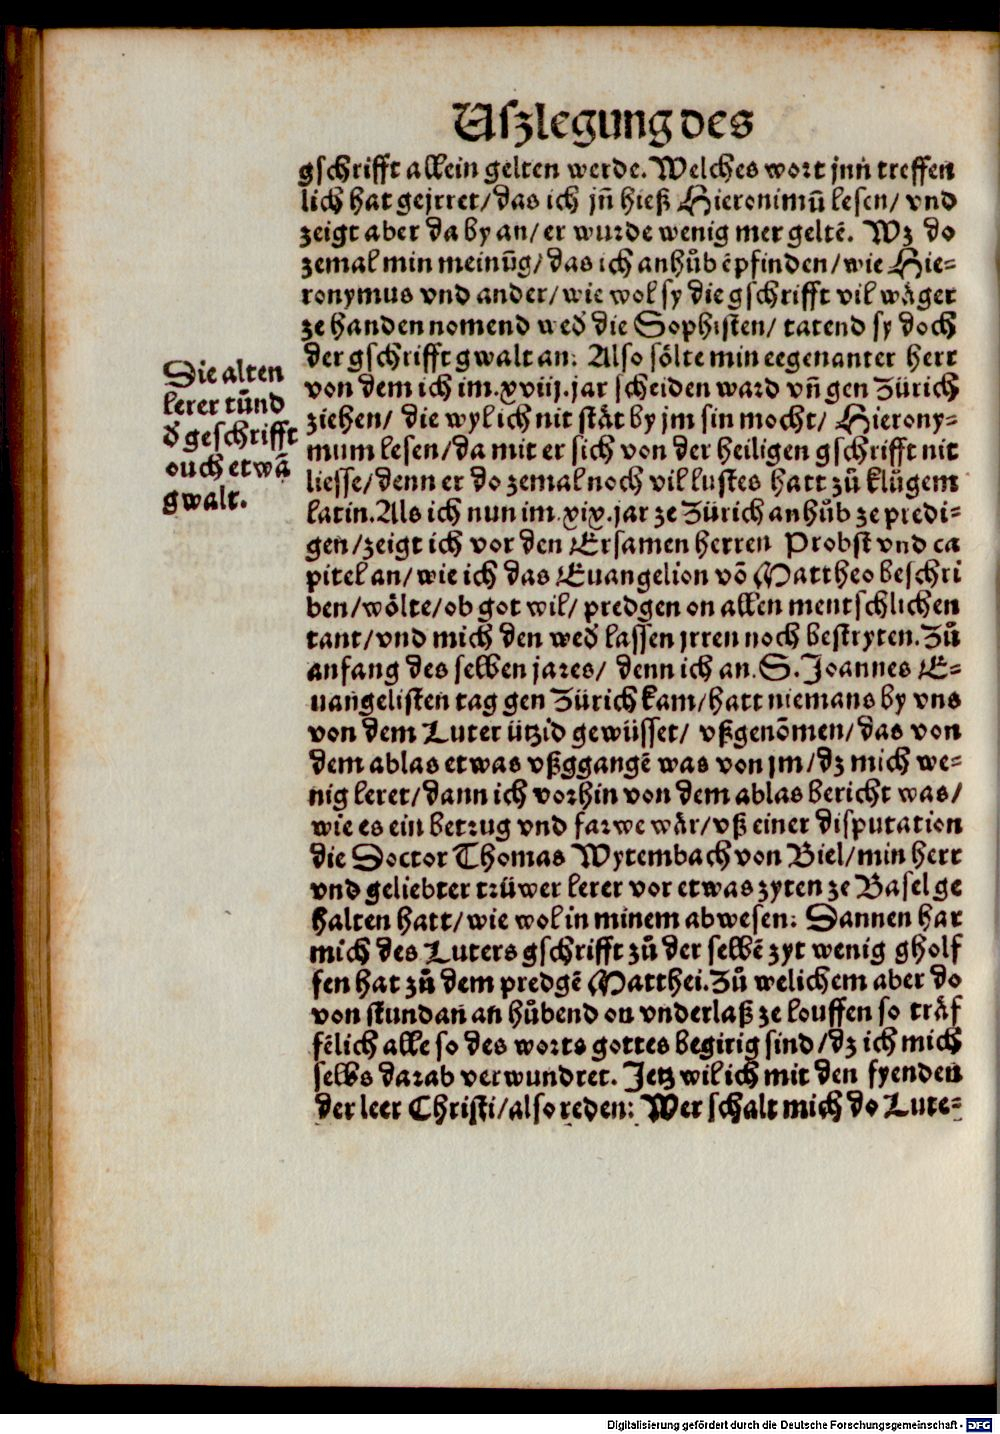 Uſzlegung des
gſchrifft allein gelten werde. Welches wort jnn treffen
lich hat gejrret/ das ich jn̄ hieß Hieronimū leſen/ vnd
zeigt aber da by an/ er wurde wenig mer geltē. Wz do
zemal min meinūg/ das ich anhůb ēpfinden/ wie Hie-
ronymus vnd ander/ wie wol ſy die gſchrifft vil wäger
ze handen nomend wed̄ die Sophiſten/ tatend ſy doch
der gſchrifft gwalt an. Alſo ſölte min eegenanter herr
von dem ich im .xviij. jar ſcheiden ward vn̄ gen Zürich
ziehen/ die wyl ich nit ſtät by jm ſin mocht/ Hierony-
mum leſen/ da mit er ſich von der heiligen gſchrifft nit
lieſſe/ denn er do zemal noch vil luſtes hatt zů klůgem
latin. Als ich nun im .xix. jar ze Zürich anhůb ze predi-
gen/ zeigt ich vor den Erſamen herren Probſt vnd ca
pitel an/ wie ich das Euangelion vō Mattheo beſchri
ben/ wölte/ ob got wil/ predgen on allen mentſchlichen
tant/ vnd mich den wed̄ laſſen jrren noch beſtryten. Zů
anfang des ſelben jares/ denn ich an. S. Joannes E-
uangeliſten tag gen Zürich kam/ hatt niemans by vns
von dem Luter ützid gewüſſet/ vßgenōmen/ das von
dem ablas etwas vßggangē was von jm/ dz mich we-
nig leret/ dann ich vorhin von dem ablas bericht was/
wie es ein betrug vnd farwe wär/ vß einer diſputation
die Doctor Thomas Wytembach von Biel/ min herr
vnd geliebter trüwer lerer vor etwas zyten ze Baſel ge
halten hatt/ wie wol in minem abweſen. Dannen har
mich des Luters gſchrifft zů der ſelbē zyt wenig gholf
fen hat zů dem predgē Matthei. Zů welichem aber do
von ſtund an an hůbend on vnderlaß ze louffen ſo träf
fēlich alle ſo des worts gottes begirig ſind/ dz ich mich
ſelbs darab verwundret. Jetz wil ich mit den fyenden
der leer Chriſti/ alſo reden: Wer ſchalt mich do Lute-
Die alten
lerer tůnd
d̄ geſchrifft
ouch etwā
gwalt.
Digitalisierung gefördert durch die Deutsche Forschungsgemeinschaft - DFG